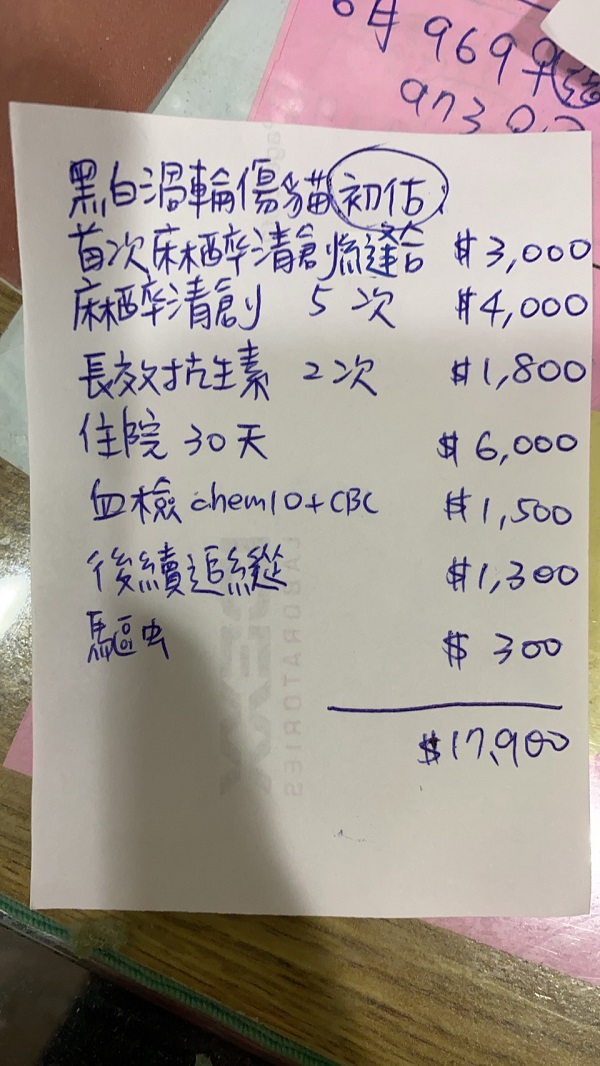 6月 9699
an3
黑白渦輪傷貓 初估
首次麻醉清創縫合 $3,000
麻醉清創 5次 $4,000
長效抗生素 2次 $1,800
住院 30天 $6,000
血檢 chem10+CBC $1,500
後續追蹤 $1,300
驅虫 $300
$17,900
IDEXX
LABORATORIES